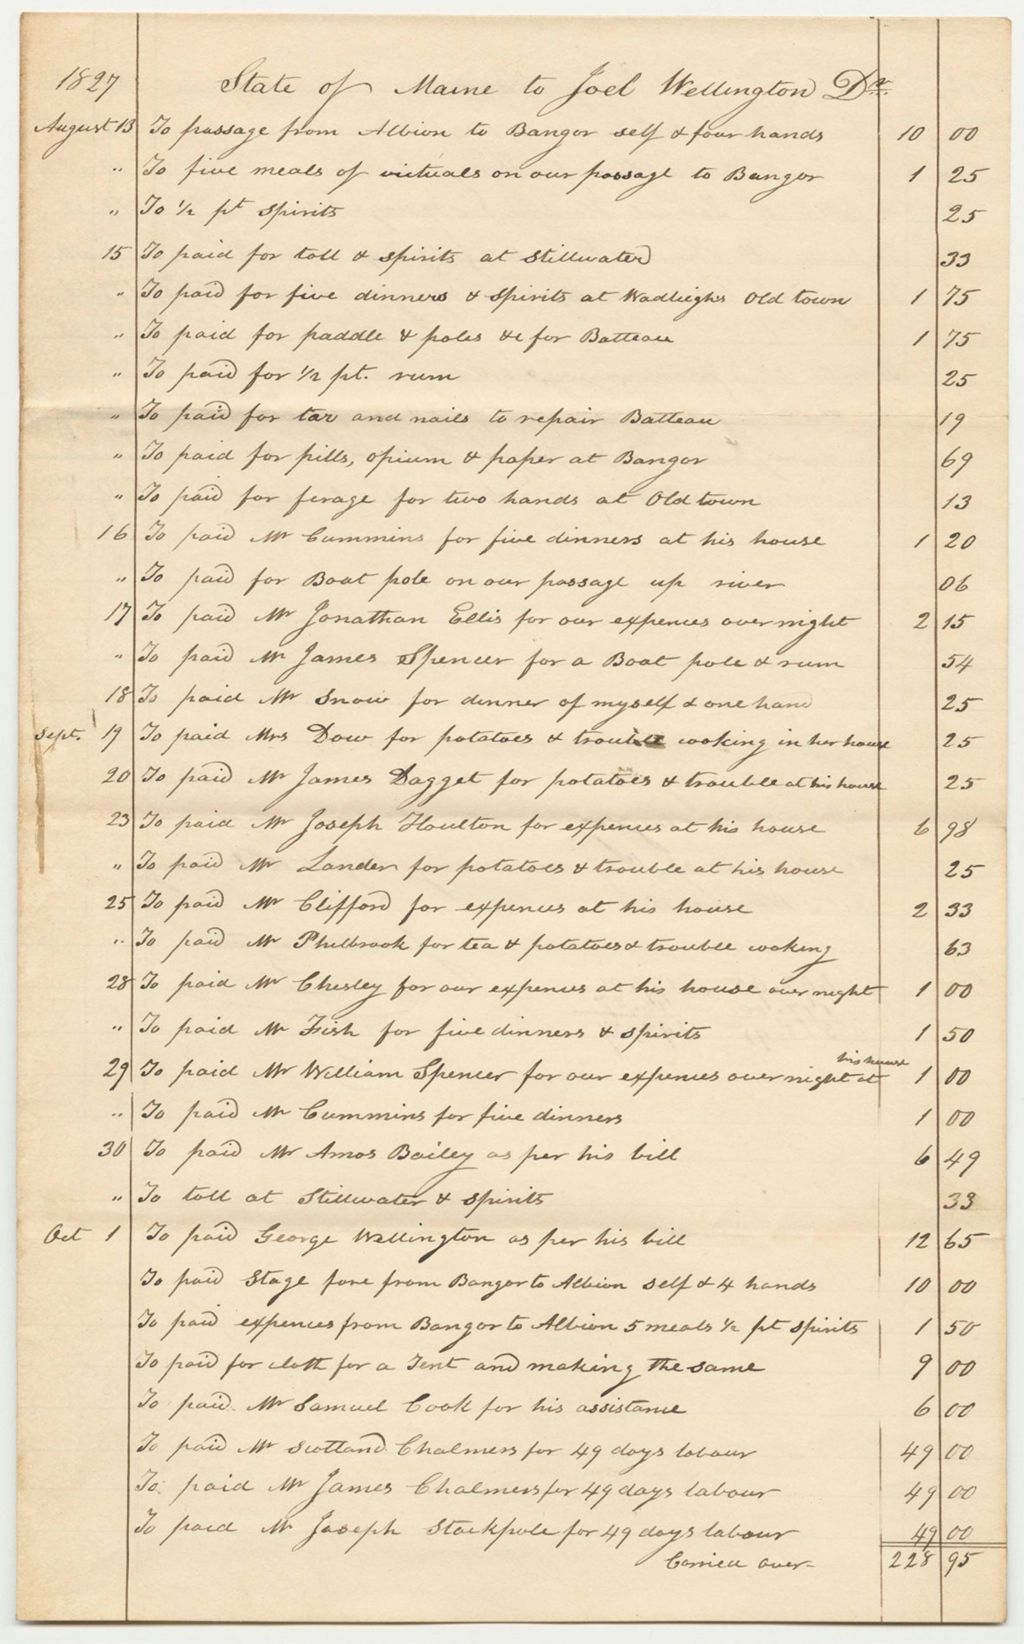 1827 State of Maine to Joel Wellington Dr.
August 13 To passage from Albion to Bangor self & four hands 10 00
" To five meals of victuals on our passage to Bangor 1 25
" To 1/2 pt spirits 25
15 To paid for toll & spirits at Stillwater 33
" To paid for five dinners & spirits at Wadleighs Old town 1 75
" To paid for paddle & poles &c for Batteau 1 75
" To paid for 1/2 pt. rum 25
" To paid for tar and nails to repair Batteau 19
" To paid for pills, opium & paper at Bangor 69
" To paid for ferage for two hands at Old town 13
16 To paid Mr Cummins for five dinners at his house 1 20
" To paid for Boat pole on our passage up river 06
17 To paid Mr Jonathan Ellis for our expences over night 2 15
" To paid Mr James Spencer for a Boat pole & rum 54
18 To paid Mr Snow for dinner of myself & one hand 25
Sept. 19 To paid Mrs Dow for potatoes & trouble cooking in her house 25
20 To paid Mr James Dagget for potatoes & trouble at his house 25
23 To paid Mr Joseph Houlton for expences at his house 6 98
" To paid Mr Lander for potatoes & trouble at his house 25
25 To paid Mr Clifford for expences at his house 2 33
" To paid Mr Philbrook for tea & potatoes & trouble cooking 63
28 To paid Mr Chesley for our expences at his house over night 1 00
" To paid Mr Fish for five dinners & spirits 1 50
29 To paid Mr William Spencer for our expences over night at his house 1 00
" To paid Mr Cummins for five dinners 1 00
30 To paid Mr Amos Bailey as per his bill 6 49
" To toll at Stillwater & spirits 33
Oct 1 To paid George Wellington as per his bill 12 65
To paid Stage fare from Bangor to Albion self & 4 hands 10 00
To paid expences from Bangor to Albion 5 meals 1/2 pt spirits 1 50
To paid for cloth for a Tent and making the same 9 00
To paid Mr Samuel Cook for his assistance 6 00
To paid Mr Scotland Chalmers for 49 days labour 49 00
To paid Mr James Chalmers for 49 days labour 49 00
To paid Mr Joseph Stackpole for 49 days labour 49 00
Carried over- 228 95